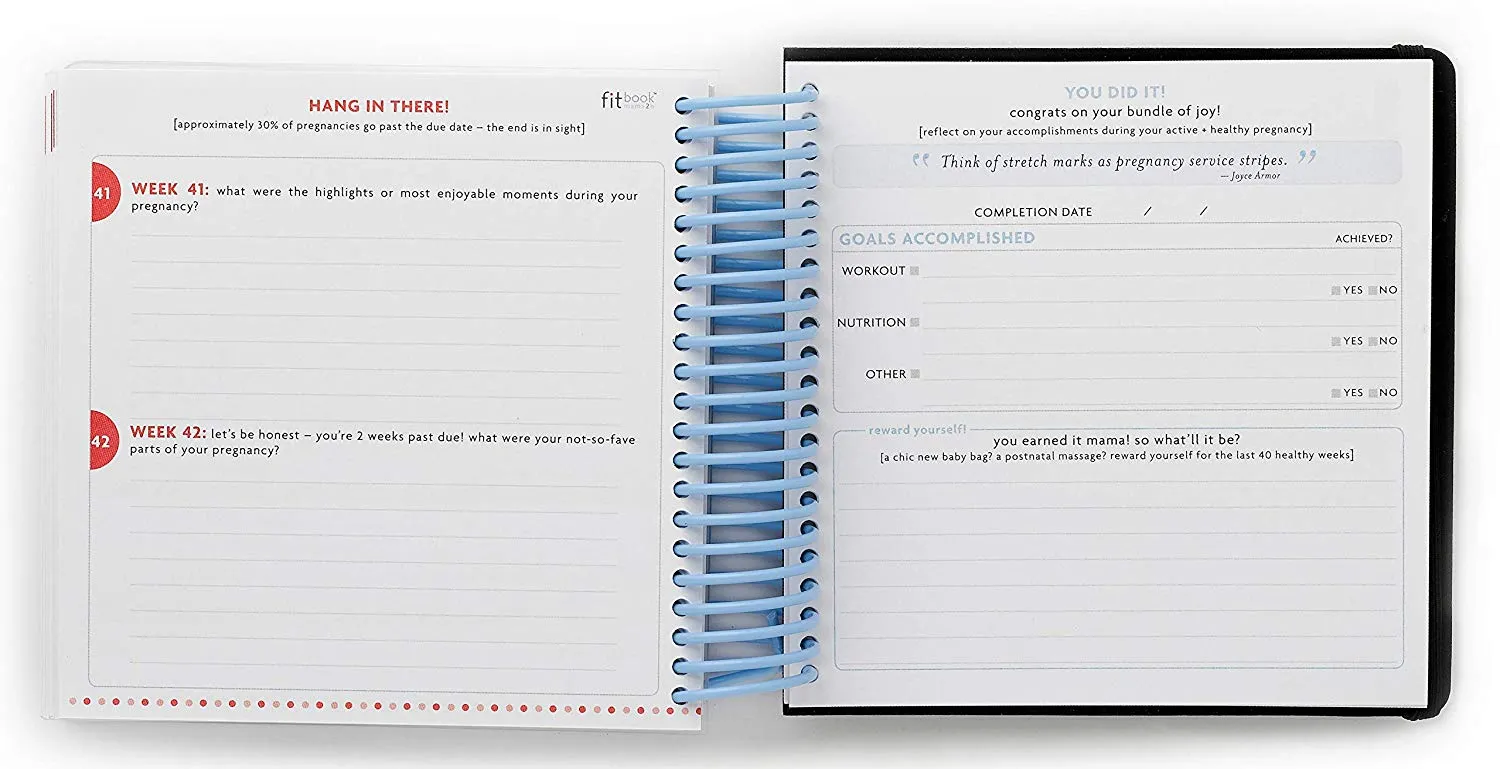 HANG IN THERE!
fitbook™
mama2b
[approximately 30% of pregnancies go past the due date – the end is in sight]
41
WEEK 41: what were the highlights or most enjoyable moments during your
pregnancy?
42
WEEK 42: let's be honest – you're 2 weeks past due! what were your not-so-fave
parts of your pregnancy?
YOU DID IT!
congrats on your bundle of joy!
[reflect on your accomplishments during your active + healthy pregnancy]
“ Think of stretch marks as pregnancy service stripes. ”
— Joyce Armor
COMPLETION DATE / /
GOALS ACCOMPLISHED ACHIEVED?
WORKOUT
YES NO
NUTRITION
YES NO
OTHER
YES NO
reward yourself!
you earned it mama! so what'll it be?
[a chic new baby bag? a postnatal massage? reward yourself for the last 40 healthy weeks]